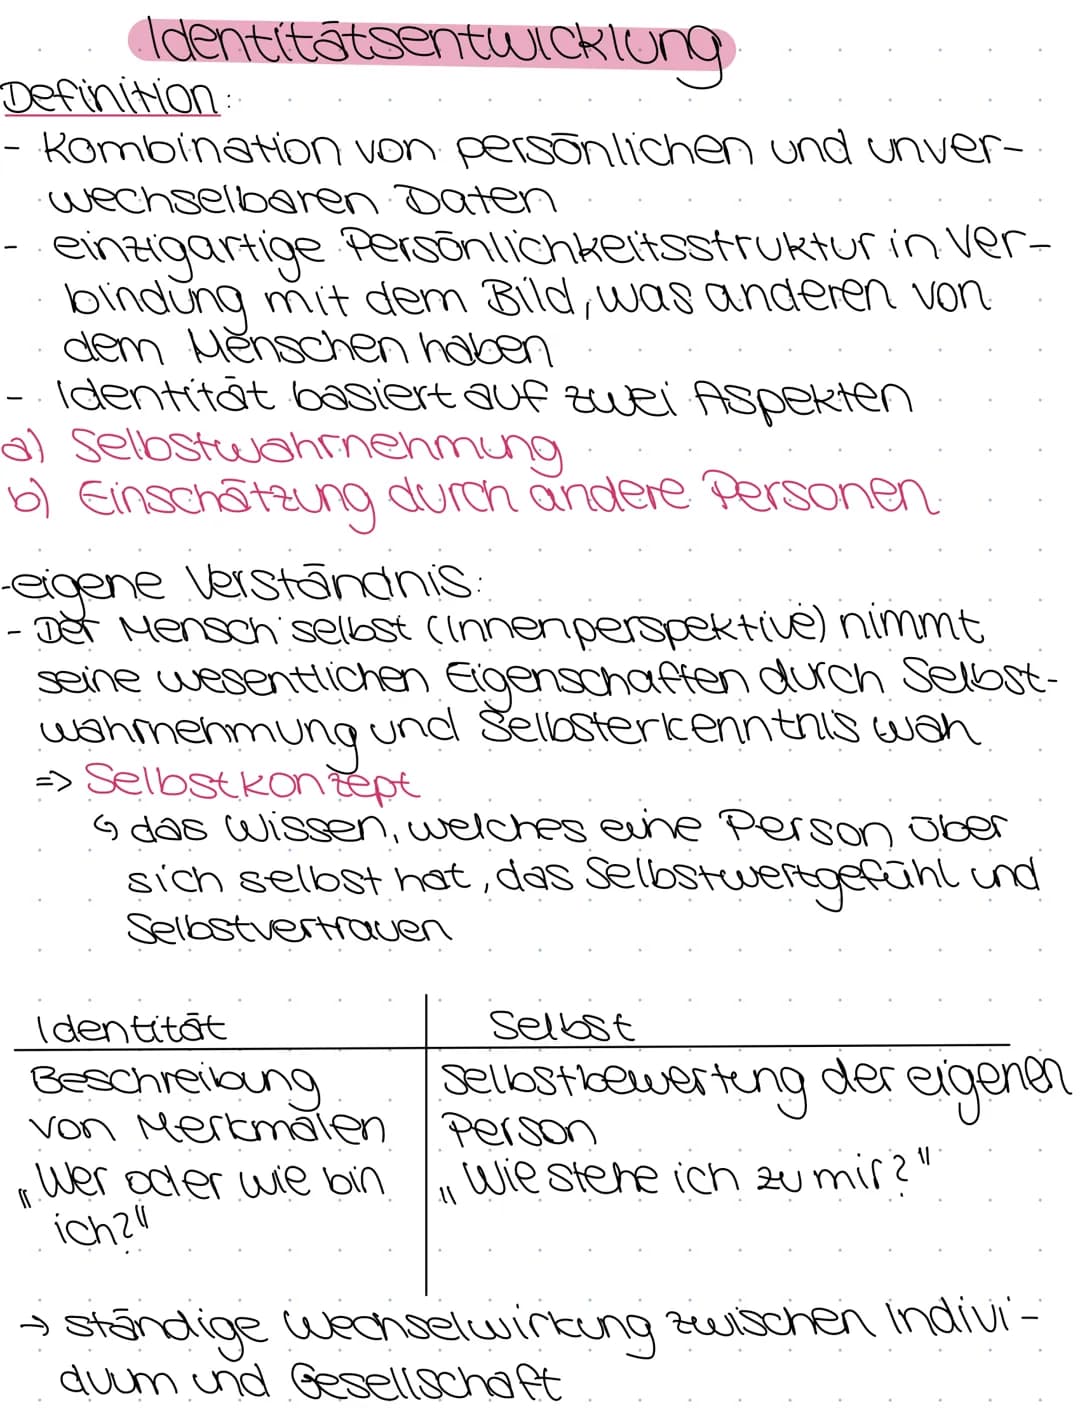 Identitätsentwicklung
Definition:
- Kombination von persönlichen und unver-
wechselbaren Daten
- einzigartige Persönlichkeitsstruktur in Ver-
bindung mit dem Bild, was anderen von
dem Menschen haben
- Identität basiert auf zwei Aspekten
a) Selbstwahrnehmung
b) Einschätzung durch andere Personen
-eigene Verständnis:
- Der Mensch selbst (Innenperspektive) nimmt
seine wesentlichen Eigenschaften durch Selbst-
wahrnehmung und Selbsterkenntnis wah
=> Selbstkonzept
↳ das Wissen, welches eine Person über
sich selbst hat, das Selbstwertgefühl und
Selbstvertrauen
Identität | Selbst
Beschreibung | Selbstbewertung der eigenen
von Merkmalen | Person
„Wer oder wie bin | „Wie stehe ich zu mir?"
ich?"
→ ständige Wechselwirkung zwischen Indivi-
duum und Gesellschaft